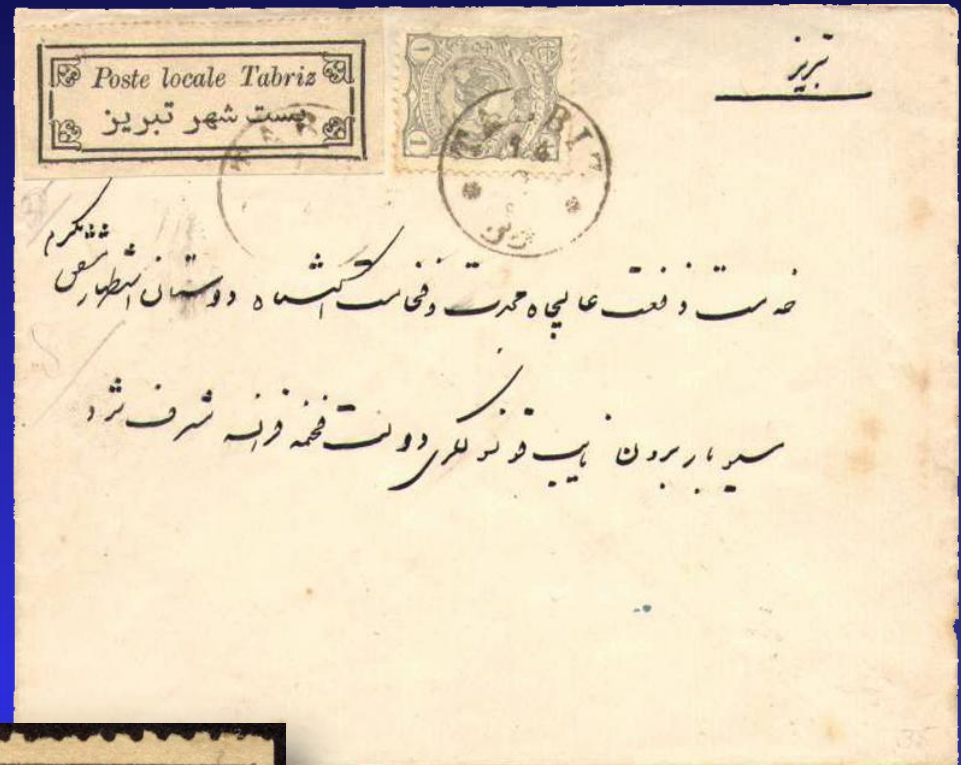 Poste locale Tabriz
پست شهر تبریز
1 1
تبریز
TAURIZ
خدمت رفعت عالیجاه مجدت و فخامت اکتناه دوستان استظهار مشفق مکرم
مسیو باربرون نایب قونسولگری دولت فخیمه فرانسه مشرف شود